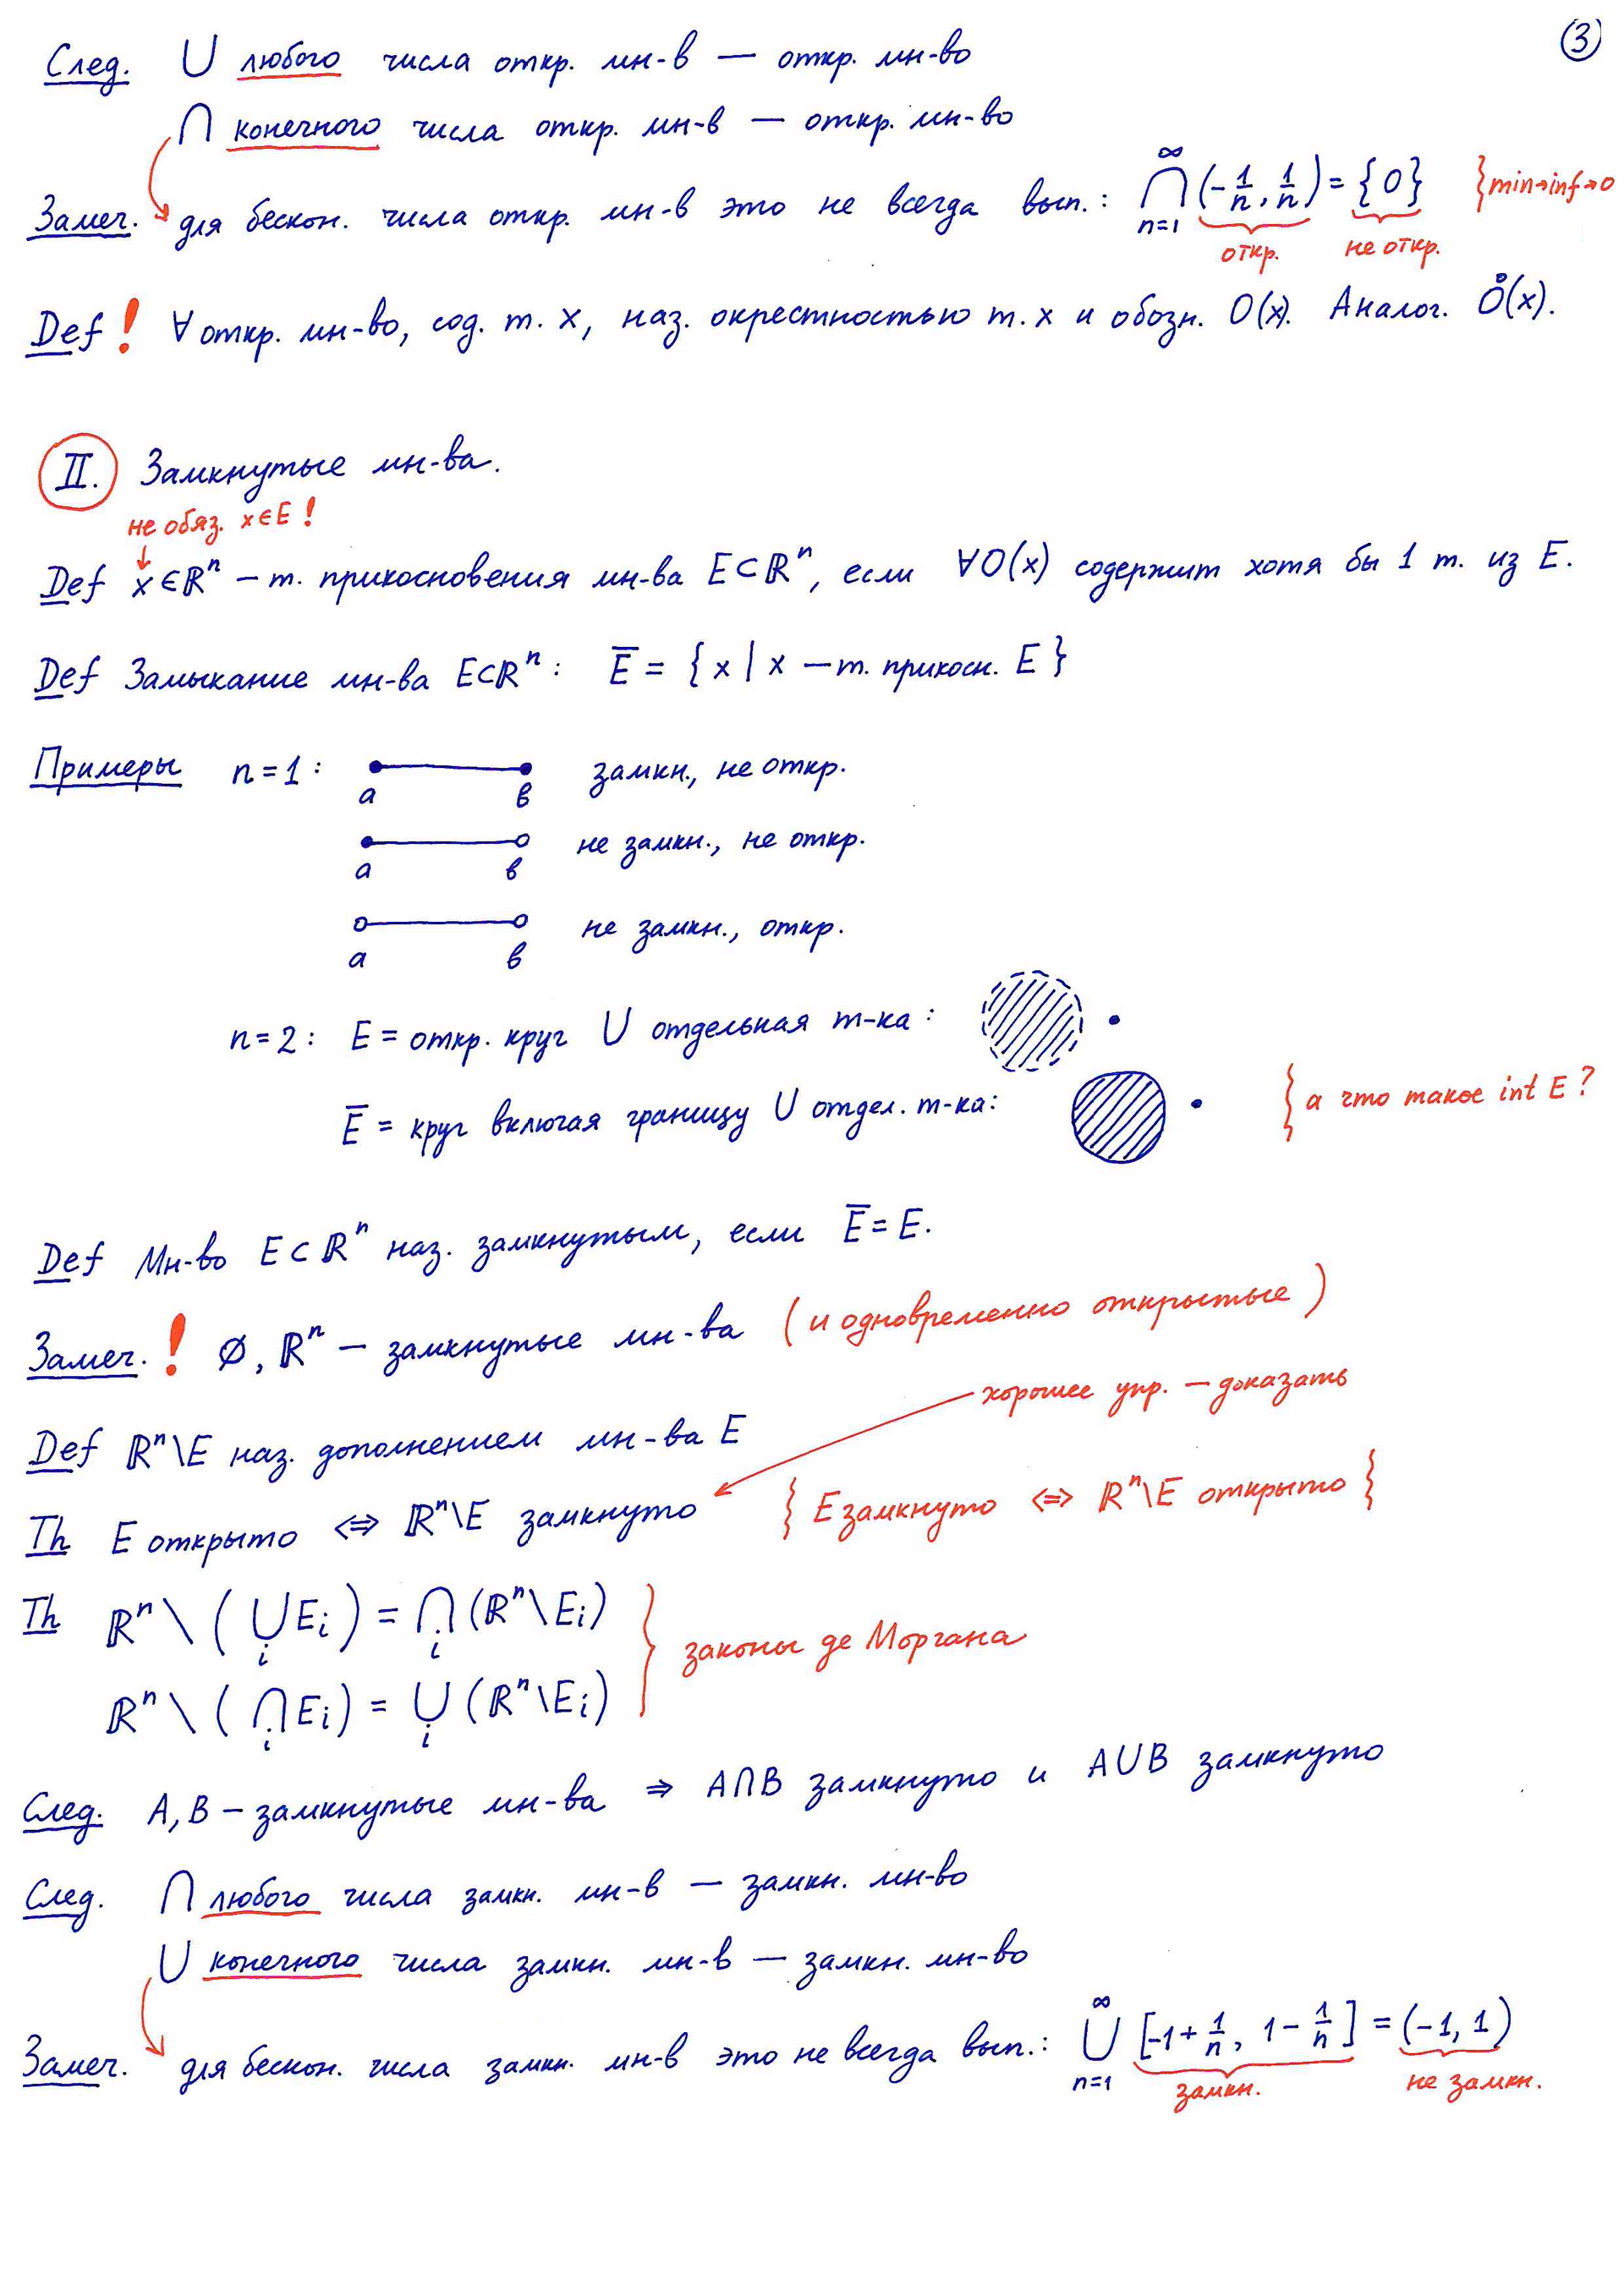 ③
След. ∪ любого числа откр. мн-в — откр. мн-во
∩ конечного числа откр. мн-в — откр. мн-во
Замеч. для бескон. числа откр. мн-в это не всегда вып.: ∞ ∩ n=1 (-1/n, 1/n) = {0} } min→inf→0
откр. не откр.
Def ! ∀ откр. мн-во, сод. т. x, наз. окрестностью т. x и обозн. O(x). Аналог. O̊(x).
II. Замкнутые мн-ва.
не обяз. x∈E !
Def x∈ℝⁿ – т. прикосновения мн-ва E⊂ℝⁿ, если ∀O(x) содержит хотя бы 1 т. из E.
Def Замыкание мн-ва E⊂ℝⁿ: E̅ = {x | x – т. прикосн. E}
Примеры n=1: замкн., не откр.
a в
не замкн., не откр.
a в
не замкн., откр.
a в
n=2: E = откр. круг ∪ отдельная т-ка:
E̅ = круг включая границу ∪ отдел. т-ка: { а что такое int E?
Def Мн-во E⊂ℝⁿ наз. замкнутым, если E̅=E.
Замеч. ! ∅, ℝⁿ – замкнутые мн-ва (и одновременно открытые)
хорошее упр. – доказать
Def ℝⁿ\E наз. дополнением мн-ва E
Th E открыто ⇔ ℝⁿ\E замкнуто { E замкнуто ⇔ ℝⁿ\E открыто }
Th ℝⁿ \ (∪ᵢ Eᵢ) = ∩ᵢ (ℝⁿ\Eᵢ)
} законы де Моргана
ℝⁿ \ (∩ᵢ Eᵢ) = ∪ᵢ (ℝⁿ\Eᵢ)
След. A, B – замкнутые мн-ва ⇒ A∩B замкнуто и A∪B замкнуто
След. ∩ любого числа замкн. мн-в — замкн. мн-во
∪ конечного числа замкн. мн-в — замкн. мн-во
Замеч. для бескон. числа замкн. мн-в это не всегда вып.: ∞ ∪ n=1 [-1+1/n, 1-1/n] = (-1, 1)
замкн. не замкн.